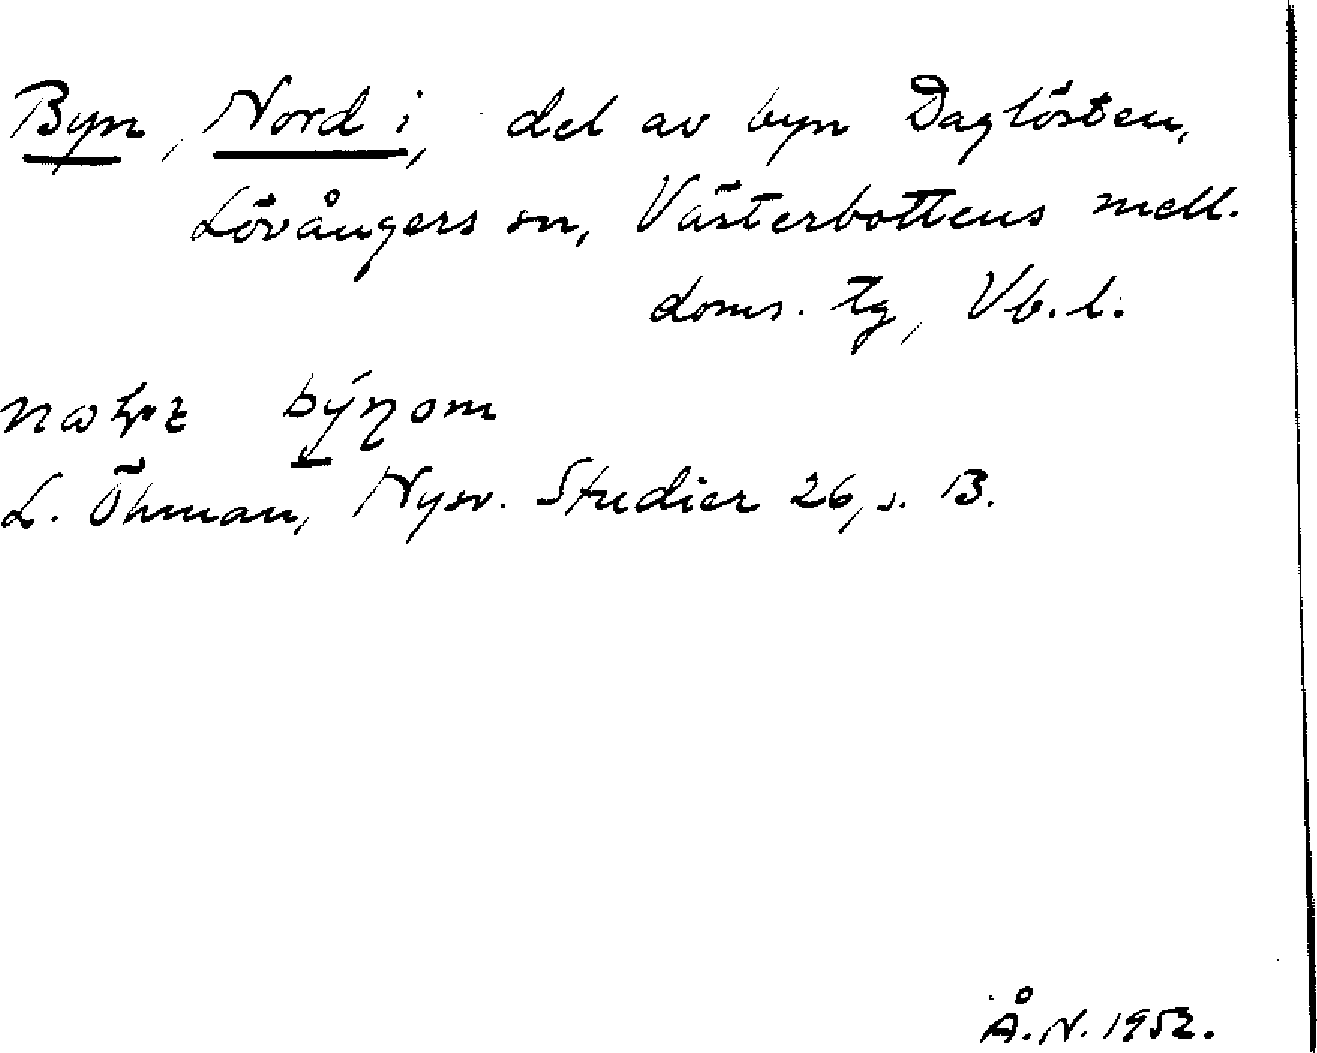 Byn, Nord i, del av byn Daglösten,
Lövångers sn, Västerbottens mell.
doms. tg, Vb. l.
býŋom
L. Öhman, Nysv. Studier 26, s. 13.
Å. N. 1952.